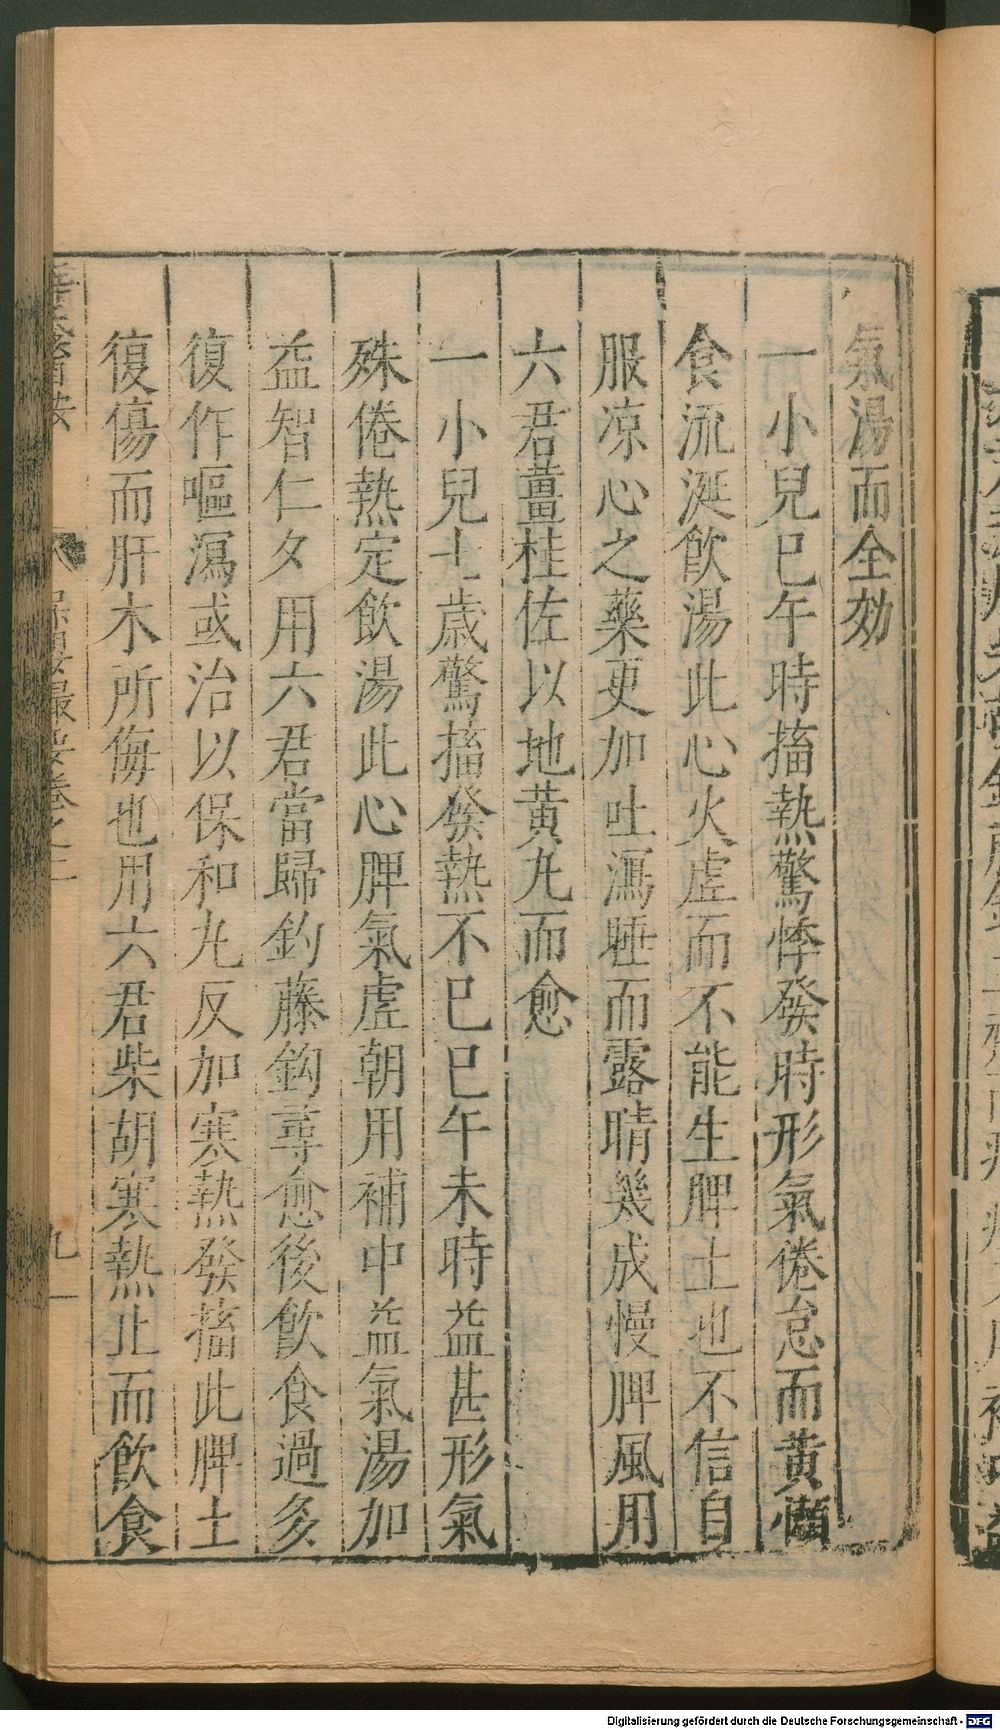 氣湯而全効
一小兒巳午時搐熱驚悸發時形氣倦怠而黃懶
食流涎飲湯此心火虛而不能生脾土也不信自
服凉心之藥更加吐瀉睡而露睛幾成慢脾風用
六君薑桂佐以地黃丸而愈
一小兒七歲驚搐發熱不已巳午未時益甚形氣
殊倦熱定飲湯此心脾氣虛朝用補中益氣湯加
益智仁夕用六君當歸釣藤鈎尋愈後飲食過多
復作嘔瀉或治以保和丸反加寒熱發搐此脾土
復傷而肝木所侮也用六君柴胡寒熱止而飲食
保嬰撮要卷之二
Digitalisierung gefördert durch die Deutsche Forschungsgemeinschaft - DFG